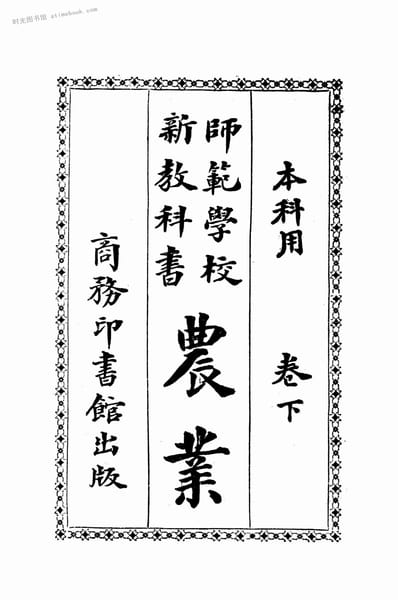 时光图书馆 atimebook.com
本科用 卷下
師範學校
新教科書
農業
商務印書館出版